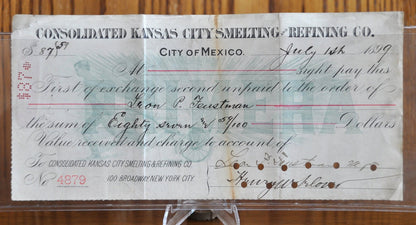 CONSOLIDATED KANSAS CITY SMELTING AND REFINING CO.
$ 87 59/ CITY OF MEXICO. July 1st 1899
$87
At sight pay this
First of exchange second unpaid to the order of
Leon P. Feustman
the sum of Eighty seven & 59/100 Dollars
Value received and charge to account of
To CONSOLIDATED KANSAS CITY SMELTING & REFINING CO.
No 4879 100 BROADWAY, NEW YORK CITY.